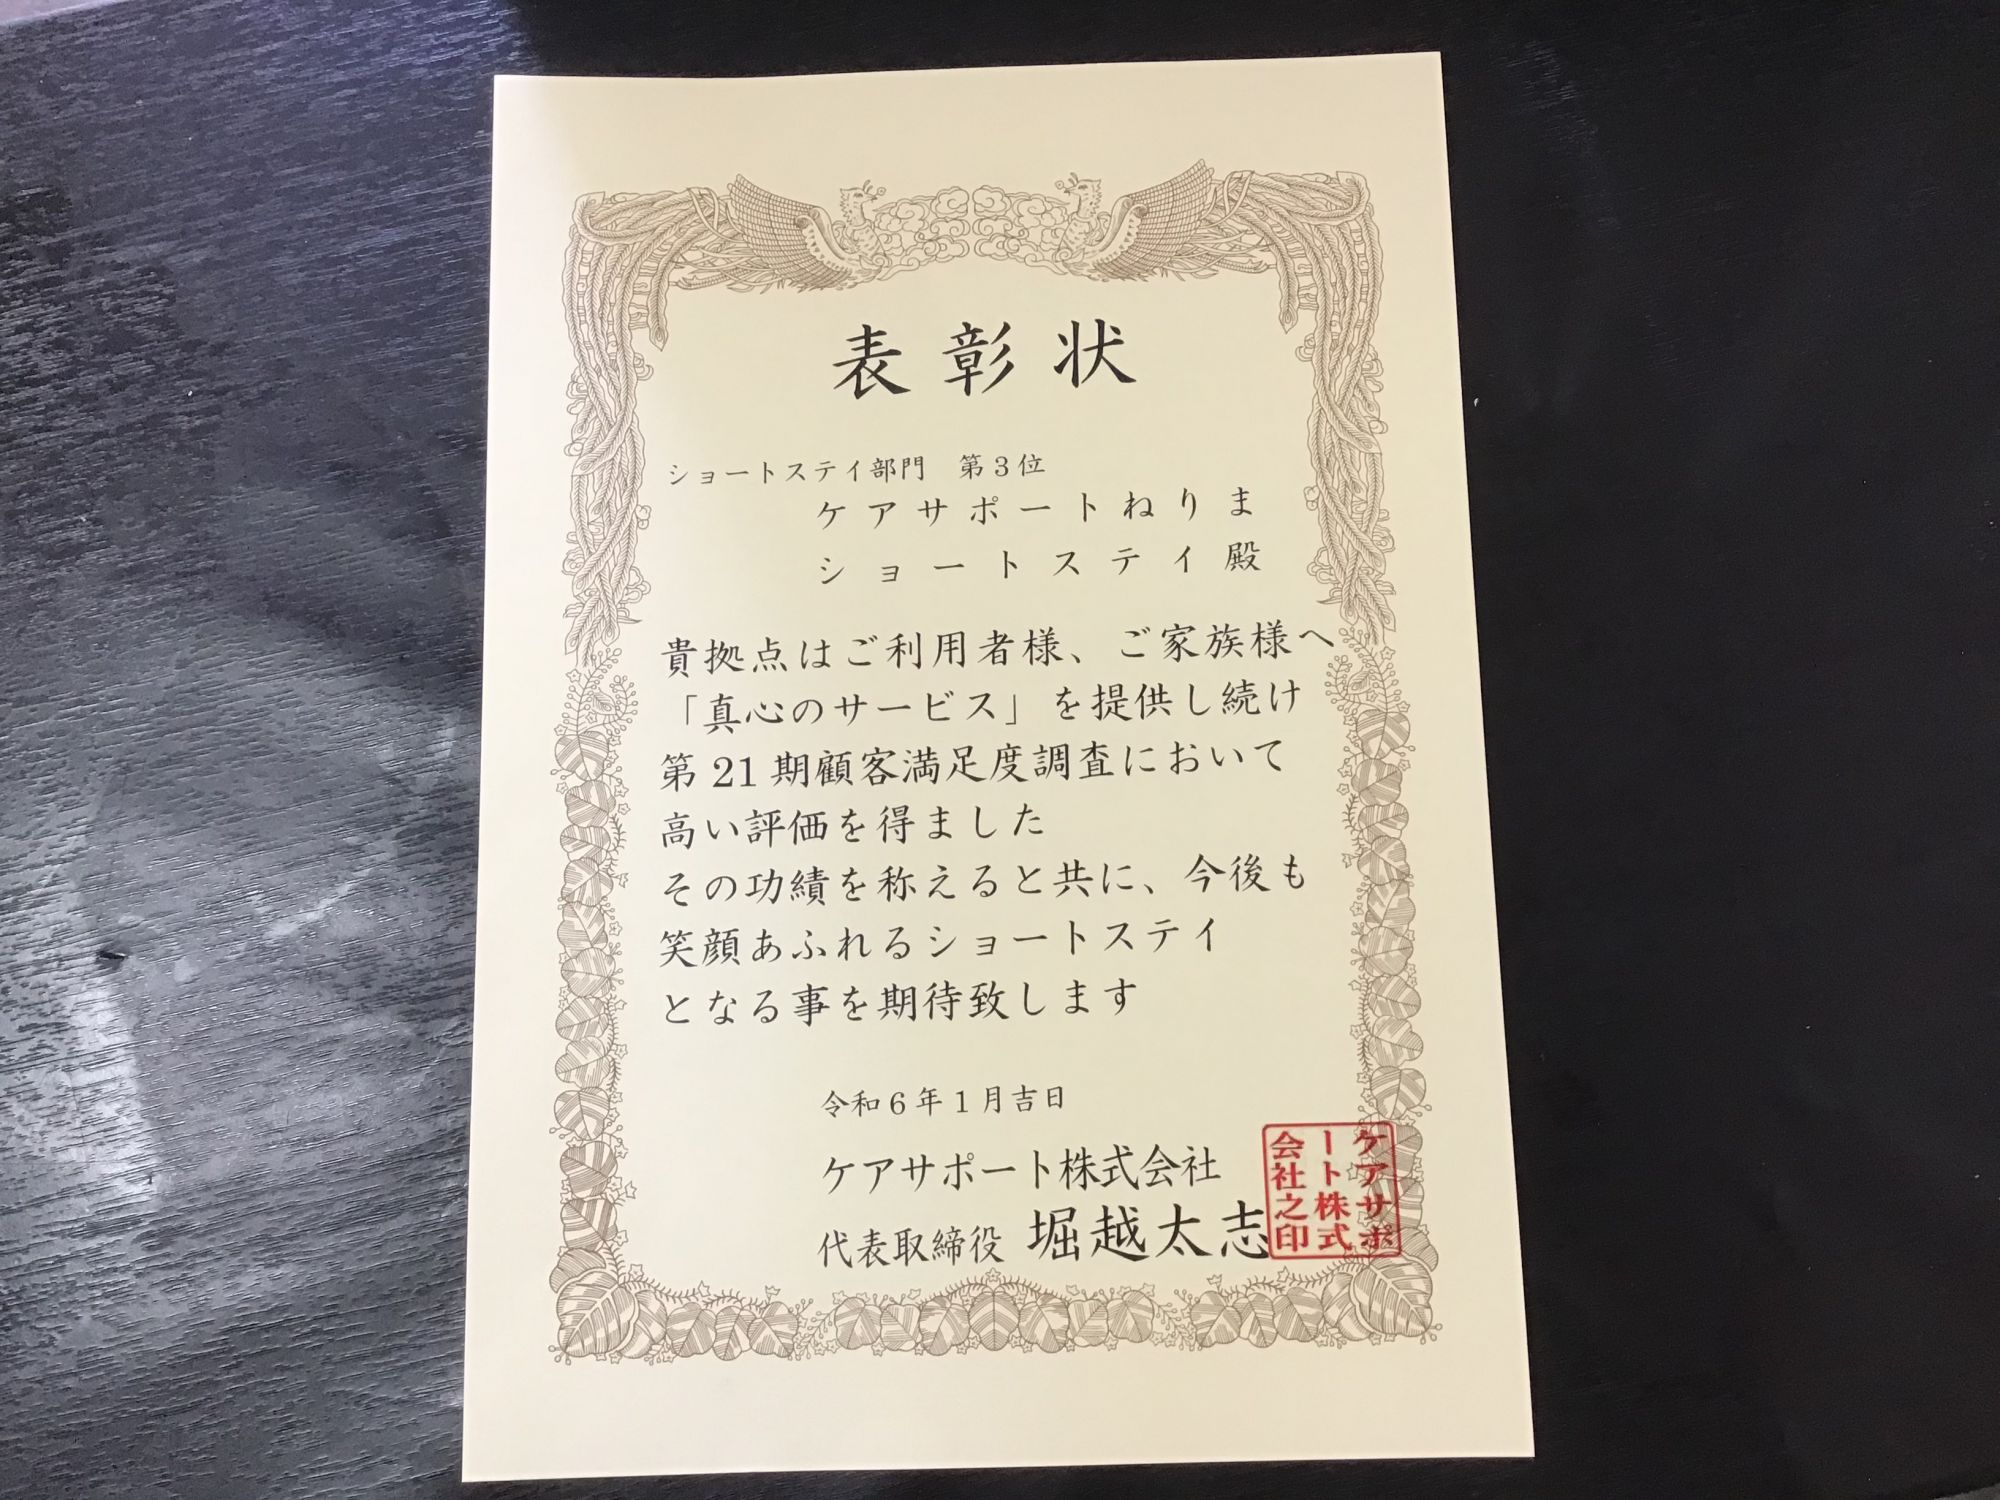 表彰状
ショートステイ部門 第3位
ケアサポートねりま
ショートステイ殿
貴拠点はご利用者様、ご家族様へ
「真心のサービス」を提供し続け
第21期顧客満足度調査において
高い評価を得ました
その功績を称えると共に、今後も
笑顔あふれるショートステイ
となる事を期待致します
令和6年1月吉日
ケアサポート株式会社
代表取締役 堀越太志
ケアサポ
ート株式
会社之印